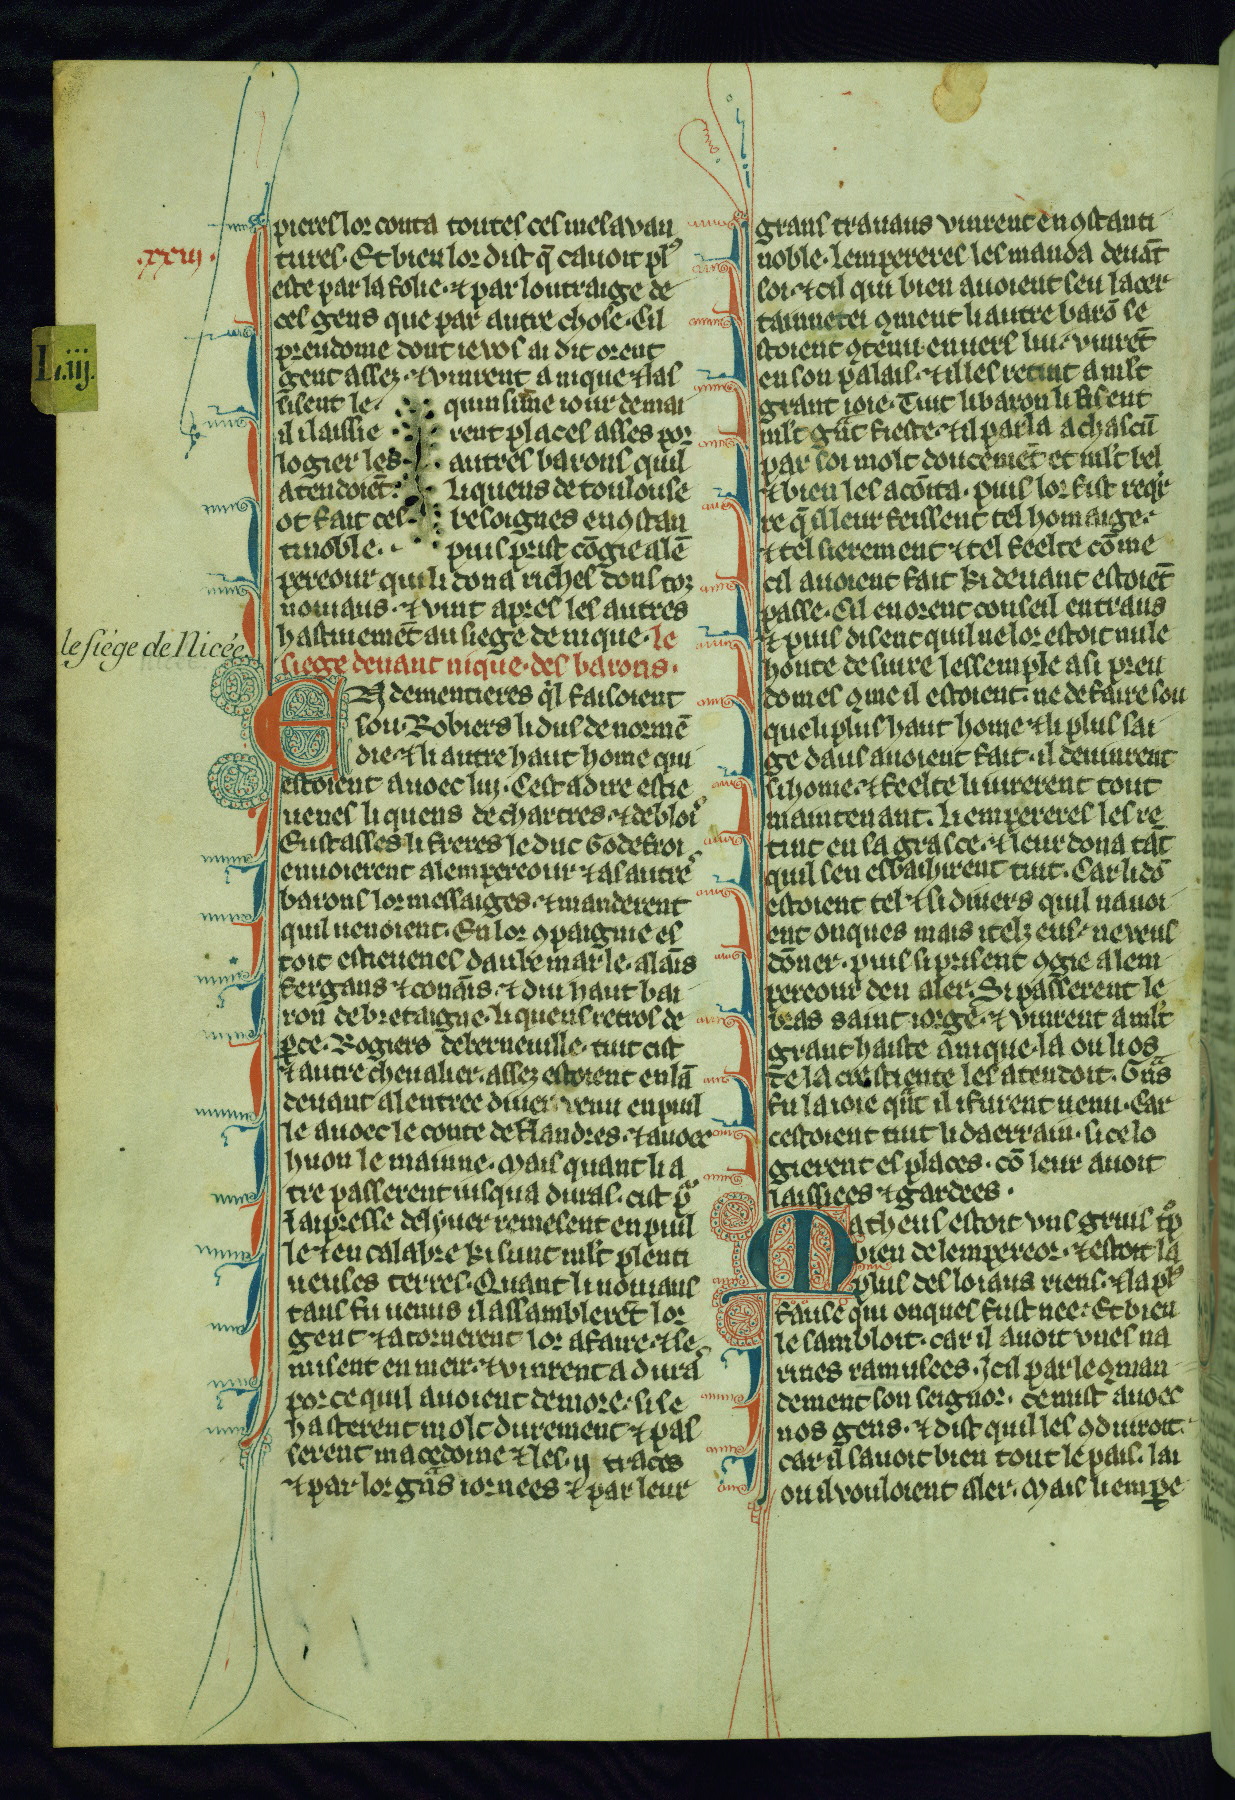 .xxiij.
L.iij.
le siége de Nicée
pieres lor conta toutes ces mesavan
tures. Et bien lor dist q̃ cavoit pl9
este par la folie. ⁊ par loutraige de
ces gens que par autre chose. Cil
preudome dont ie vos ai dit orent
gent assez. ⁊ vinrent a nique ⁊ las
sisent le. quinsime iour de mai
il i laissie rent places asses por
logier les autres barons quil
atendoiẽt. li quens de toulouse
ot fait ces besoignes en ꝯstan
tinoble. puis prist cõgie a lẽ
pereour qui li dona riches dons tor
nouians. ⁊ vint apres les autres
hastiuemẽt au siege de nique. le
siege deuant nique. des barons.
En dementieres q̃l faisoient
sou. Robiers li dus de normẽ
die. ⁊ li autre haut home qui
estoient auoec lui. Cest a dire estie
uenes li quens de chartres. ⁊ de blois
Eustasses li freres le duc Godefroi.
enuoierent a lempereour ⁊ as autre
barons lor messaiges. ⁊ manderent
quil uenoient. En lor ꝯpaignie es
toit estieuenes daubemarle. alaĩs
fergans ⁊ conãis. ⁊ dui haut ba
ron de bretaigne. li quens retros de
ꝑce. Rogiers de berneuille. tuit cist
⁊ autre cheualier assez estoient en lã
deuant a lentree diuer venu en puil
le auoec le conte de flandres. ⁊ auoec
huon le mainne. Mais quant li a
tre passerent iusqua duras. cist p̃
laipresse de lyuer remesent en puil
le ⁊ en calabre ki sunt ml̃t plenti
ueuses terres. Quant li nouians
tans fu uenus il assamblerẽt lor
gent ⁊ atornerent lor afaire. ⁊ se
misent en meir. ⁊ vinrent a duras
por ce quil auoient demore. si se
hasterent molt durement ⁊ pas
serent macedoine ⁊ les .ij. traces
⁊ par lor grãs iornees ⁊ par leur
grans trauaus vinrent en ꝯstanti
noble. lempereres les manda deuãt
soi. ⁊ cil qui bien auoient seu la cer
tainnetei ꝯment li autre barõ se
stoient ꝯtenu enuers lui. vinrẽt
en son palais. ⁊ il les recuit a mlt
grant ioie. Tuit li baron li fisent
mlt grãt fieste. ⁊ il parla a chascũ
par soi molt doucemẽt et mlt bel
⁊ bien les acõita. puis lor fist reqr
re q̃ il leur feissent tel homaige.
⁊ tel sierement ⁊ tel feelte cõme
cil auoient fait ki deuant estoiẽt
passe. Cil en orent conseil entraus
⁊ puis disent quil ne lor estoit nule
honte de siure lessemple a si preu
domes ꝯme il estoient. ne de faire sou
que li plus haut home ⁊ li plus sai
ge daus auoient fait. il deuinrent
si home. ⁊ feelte li iurerent tout
maintenant. li empereres les re
tint en sa grasce. ⁊ leur dona tãt
quil sen esbahirent tuit. Car li dõ
estoient tel ⁊ si diuers quil nauoi
ent onques mais itelz eus ne veus
dõner. puis si prisent ꝯgie a lem
pereour deu aler. Si passerent le
bras saint iorge. ⁊ vinrent a mlt
grant haiste a nique. la ou li os
de la crestiente les atendoit. Grãs
fu la ioie quãt il i furent uenu. Car
cestoient tuit li daerrain. si ce lo
gierent es places. cõ leur auoit
laissiees ⁊ gardees.
Matheus estoit vns grius tp̃
bien de lempereor. ⁊ estoit la
plus desloiaus riens. ⁊ la pl9
fause qui onques fust nee. Et bien
le sambloit. car il auoit vnes na
rines ramusees. Icil par le ꝯman
dement son seignor. ce mist auoec
nos gens. ⁊ dist quil les ꝯduiroit.
car il sauoit bien tout le pais. lai
ou il vouloient aler. Mais li empe